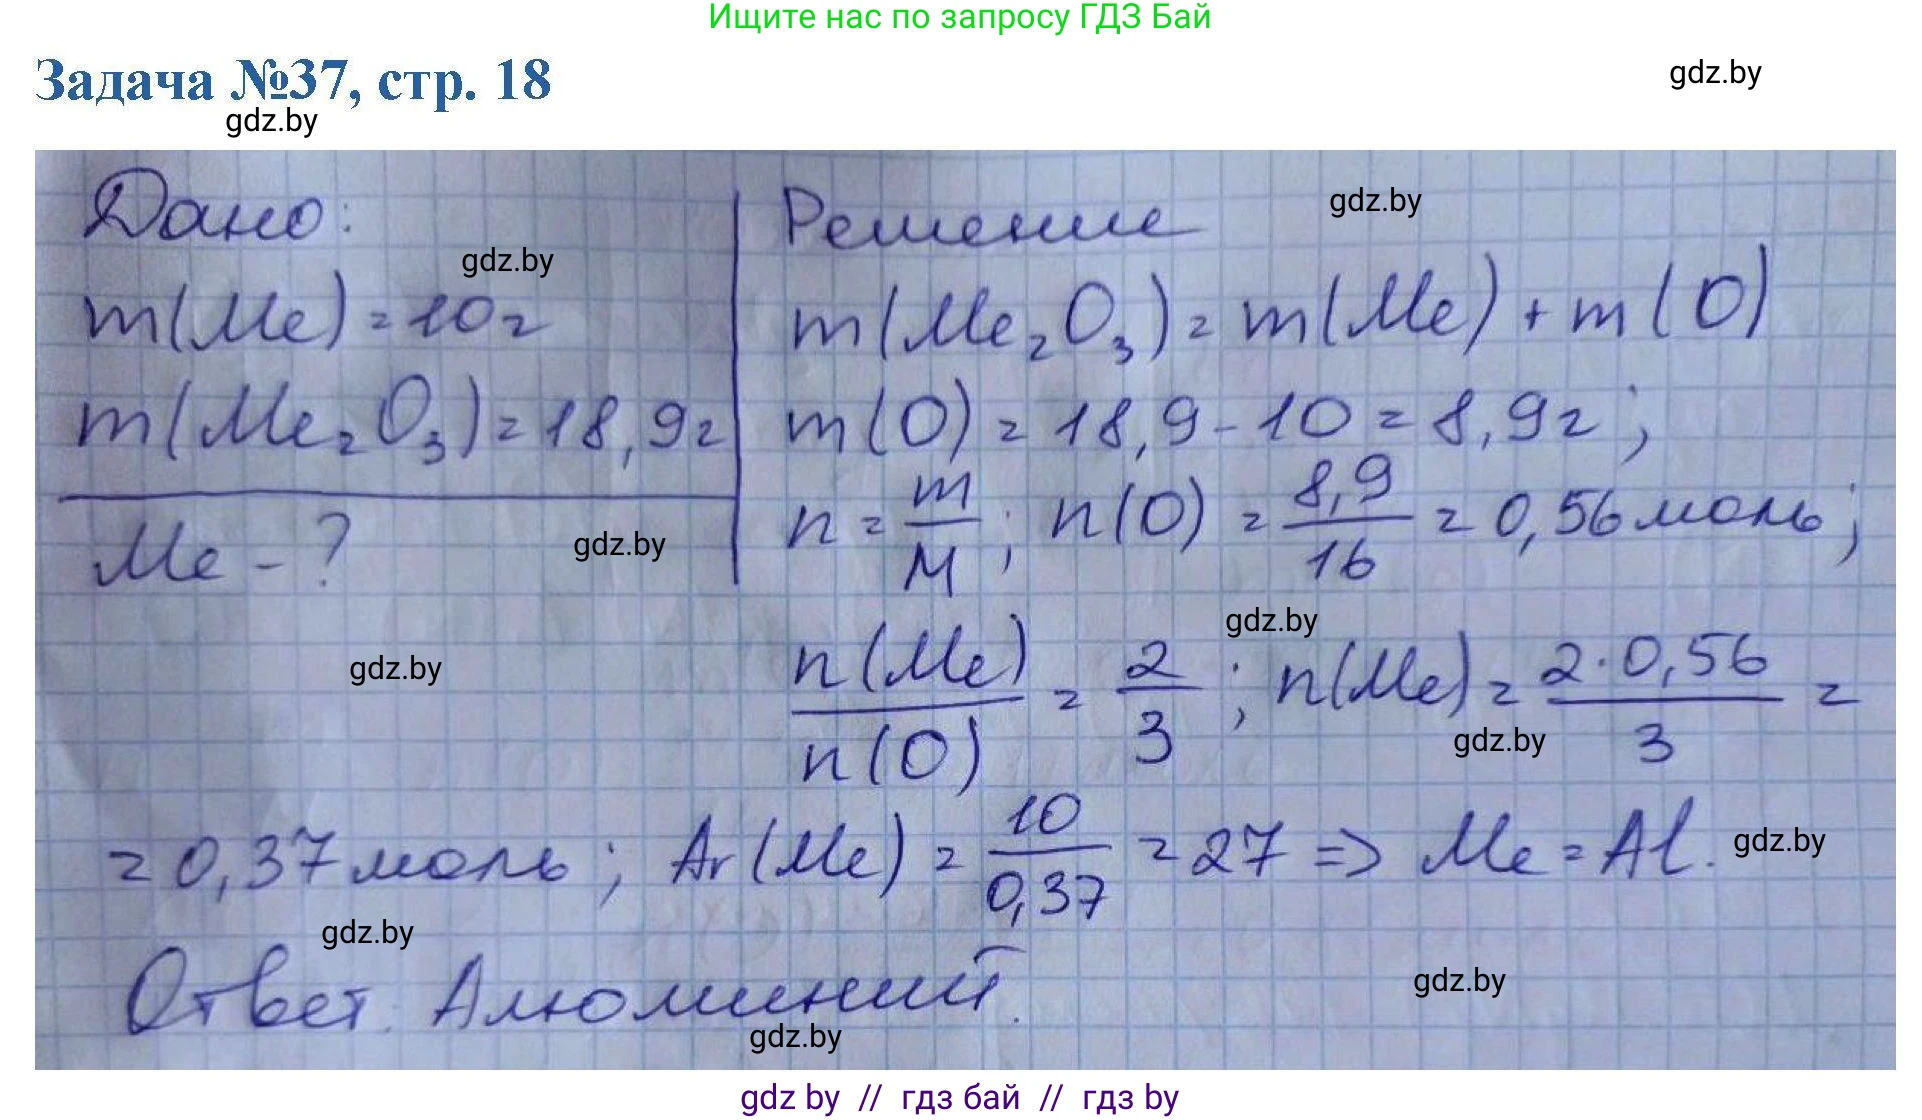 Ищите нас по запросу ГДЗ Бай
Задача №37, стр. 18
gdz.by
gdz.by
Дано:
Решение
gdz.by
gdz.by
m(Me) = 10г
m(Me₂O₃) = m(Me) + m(O)
m(Me₂O₃) = 18,9г
m(O) = 18,9 - 10 = 8,9г;
Me - ?
gdz.by
n = m/M; n(O) = 8,9/16 = 0,56 моль;
gdz.by
gdz.by
n(Me)/n(O) = 2/3; n(Me) = 2·0,56/3 =
gdz.by
= 0,37 моль; Ar(Me) = 10/0,37 = 27 => Me = Al.
gdz.by
gdz.by
Ответ: Алюминий.
gdz.by
gdz.by
gdz by // гдз бай // гдз by